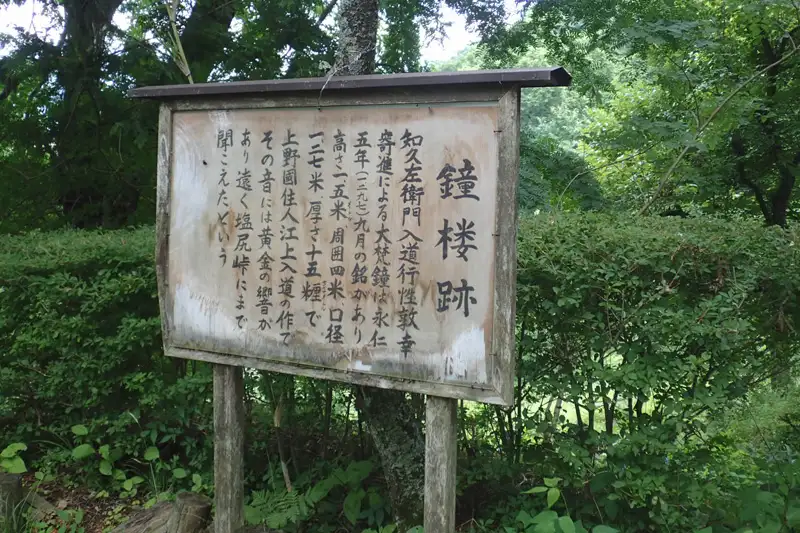 鐘楼跡
知久左衛門入道行性敦幸
寄進による大梵鐘は永仁
五年(一二九七)九月の銘があり
高さ一五米 周囲四米 口径
一二七米 厚さ十五糎で
上野國住人江上入道の作で
その音には黄金の響が
あり遠く塩尻峠にまで
聞こえたという